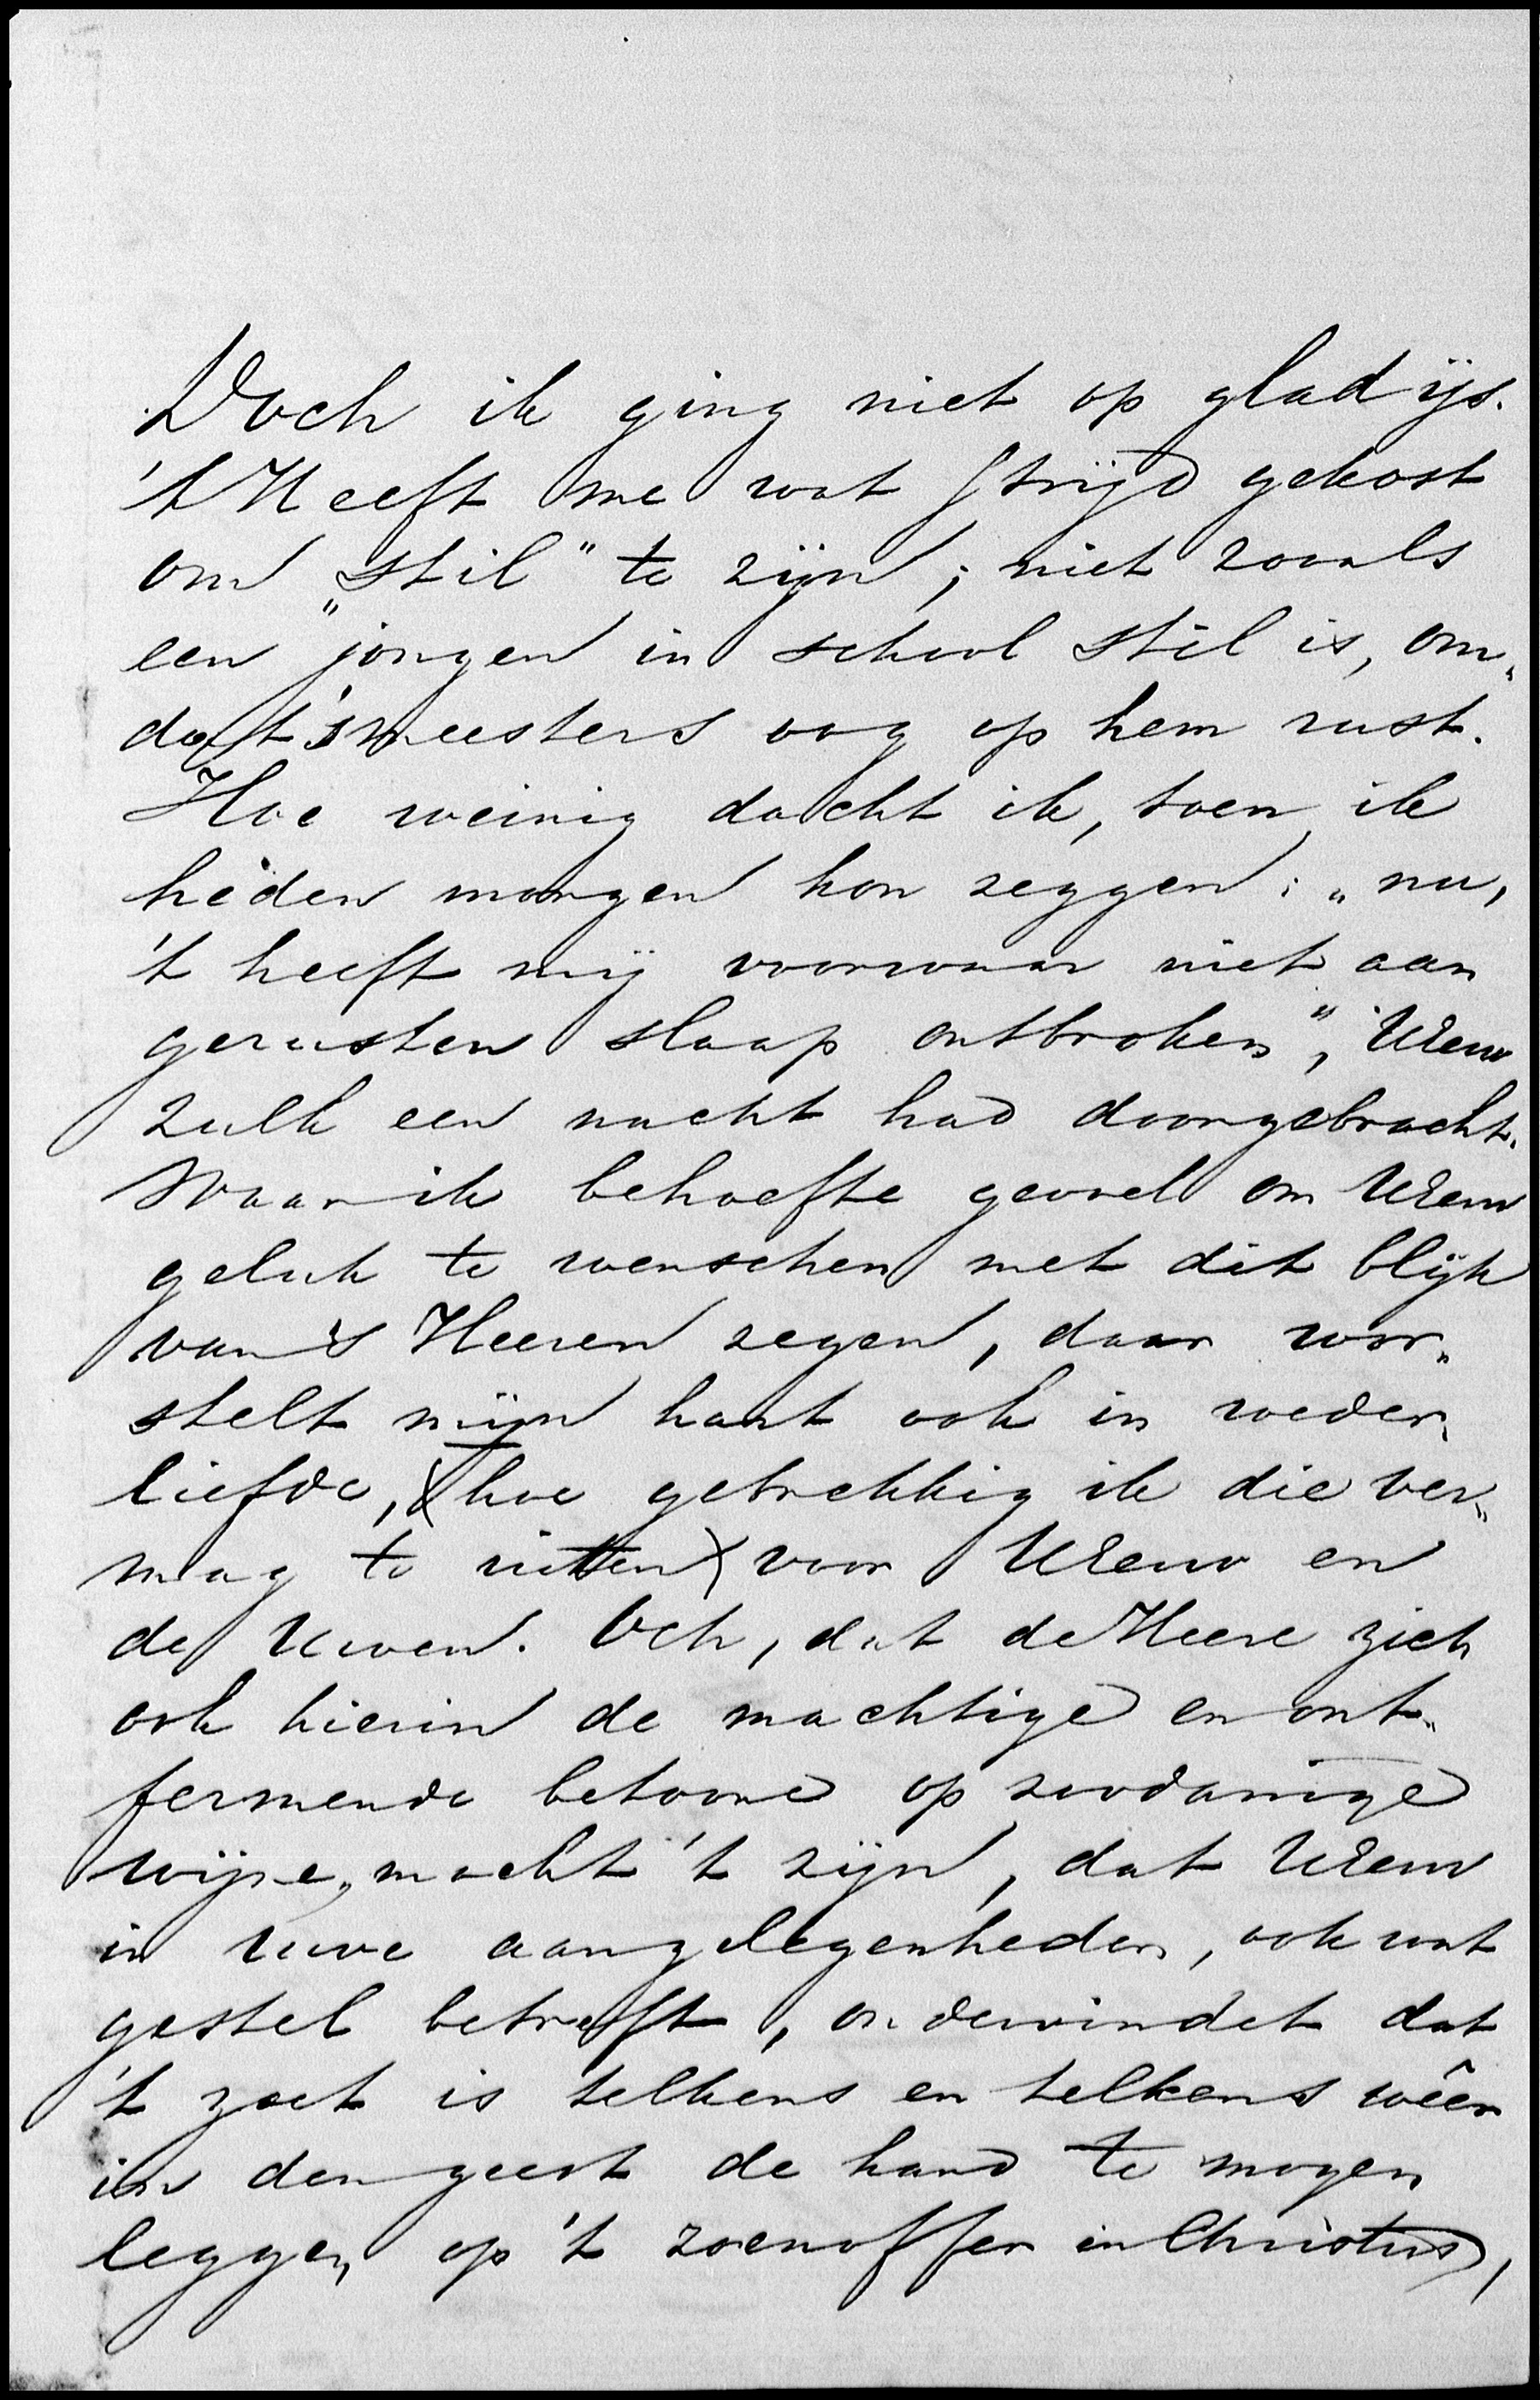 Doch ik ging niet op glad ijs.
't Heeft me wat strijd gekost
om „stil” te zijn; niet zooals
een jongen in school stil is, om„
dat 's meesters oog op hem rust.
Hoe weinig dacht ik, toen ik
héden morgen kon zeggen: „nu,
't heeft mij voorwaar niet aan
gerusten slaap ontbroken”, UEerw
zulk een nacht had doorgebracht.
Waar ik behoefte gevoel om UEerw
geluk te wenschen met dit blijk
van 's Heeren zegen, daar wor„
stelt mijn hart ook in weder„
liefde, (hoe gebrekkig ik die ver„
mag te uitten) voor UEerw en
de Uwen. Och, dat de Heere zich
ook hierin de machtige en ont„
fermende betoone op zoodanige
wijze, mocht 't zijn, dat UEerw
in Uwe aangelegenheden, ook wat
gestel betreft, ondervindet dat
't zoet is telkens en telkens wêer
in den geest de hand te mogen
leggen op 't zoenoffer in Christus,